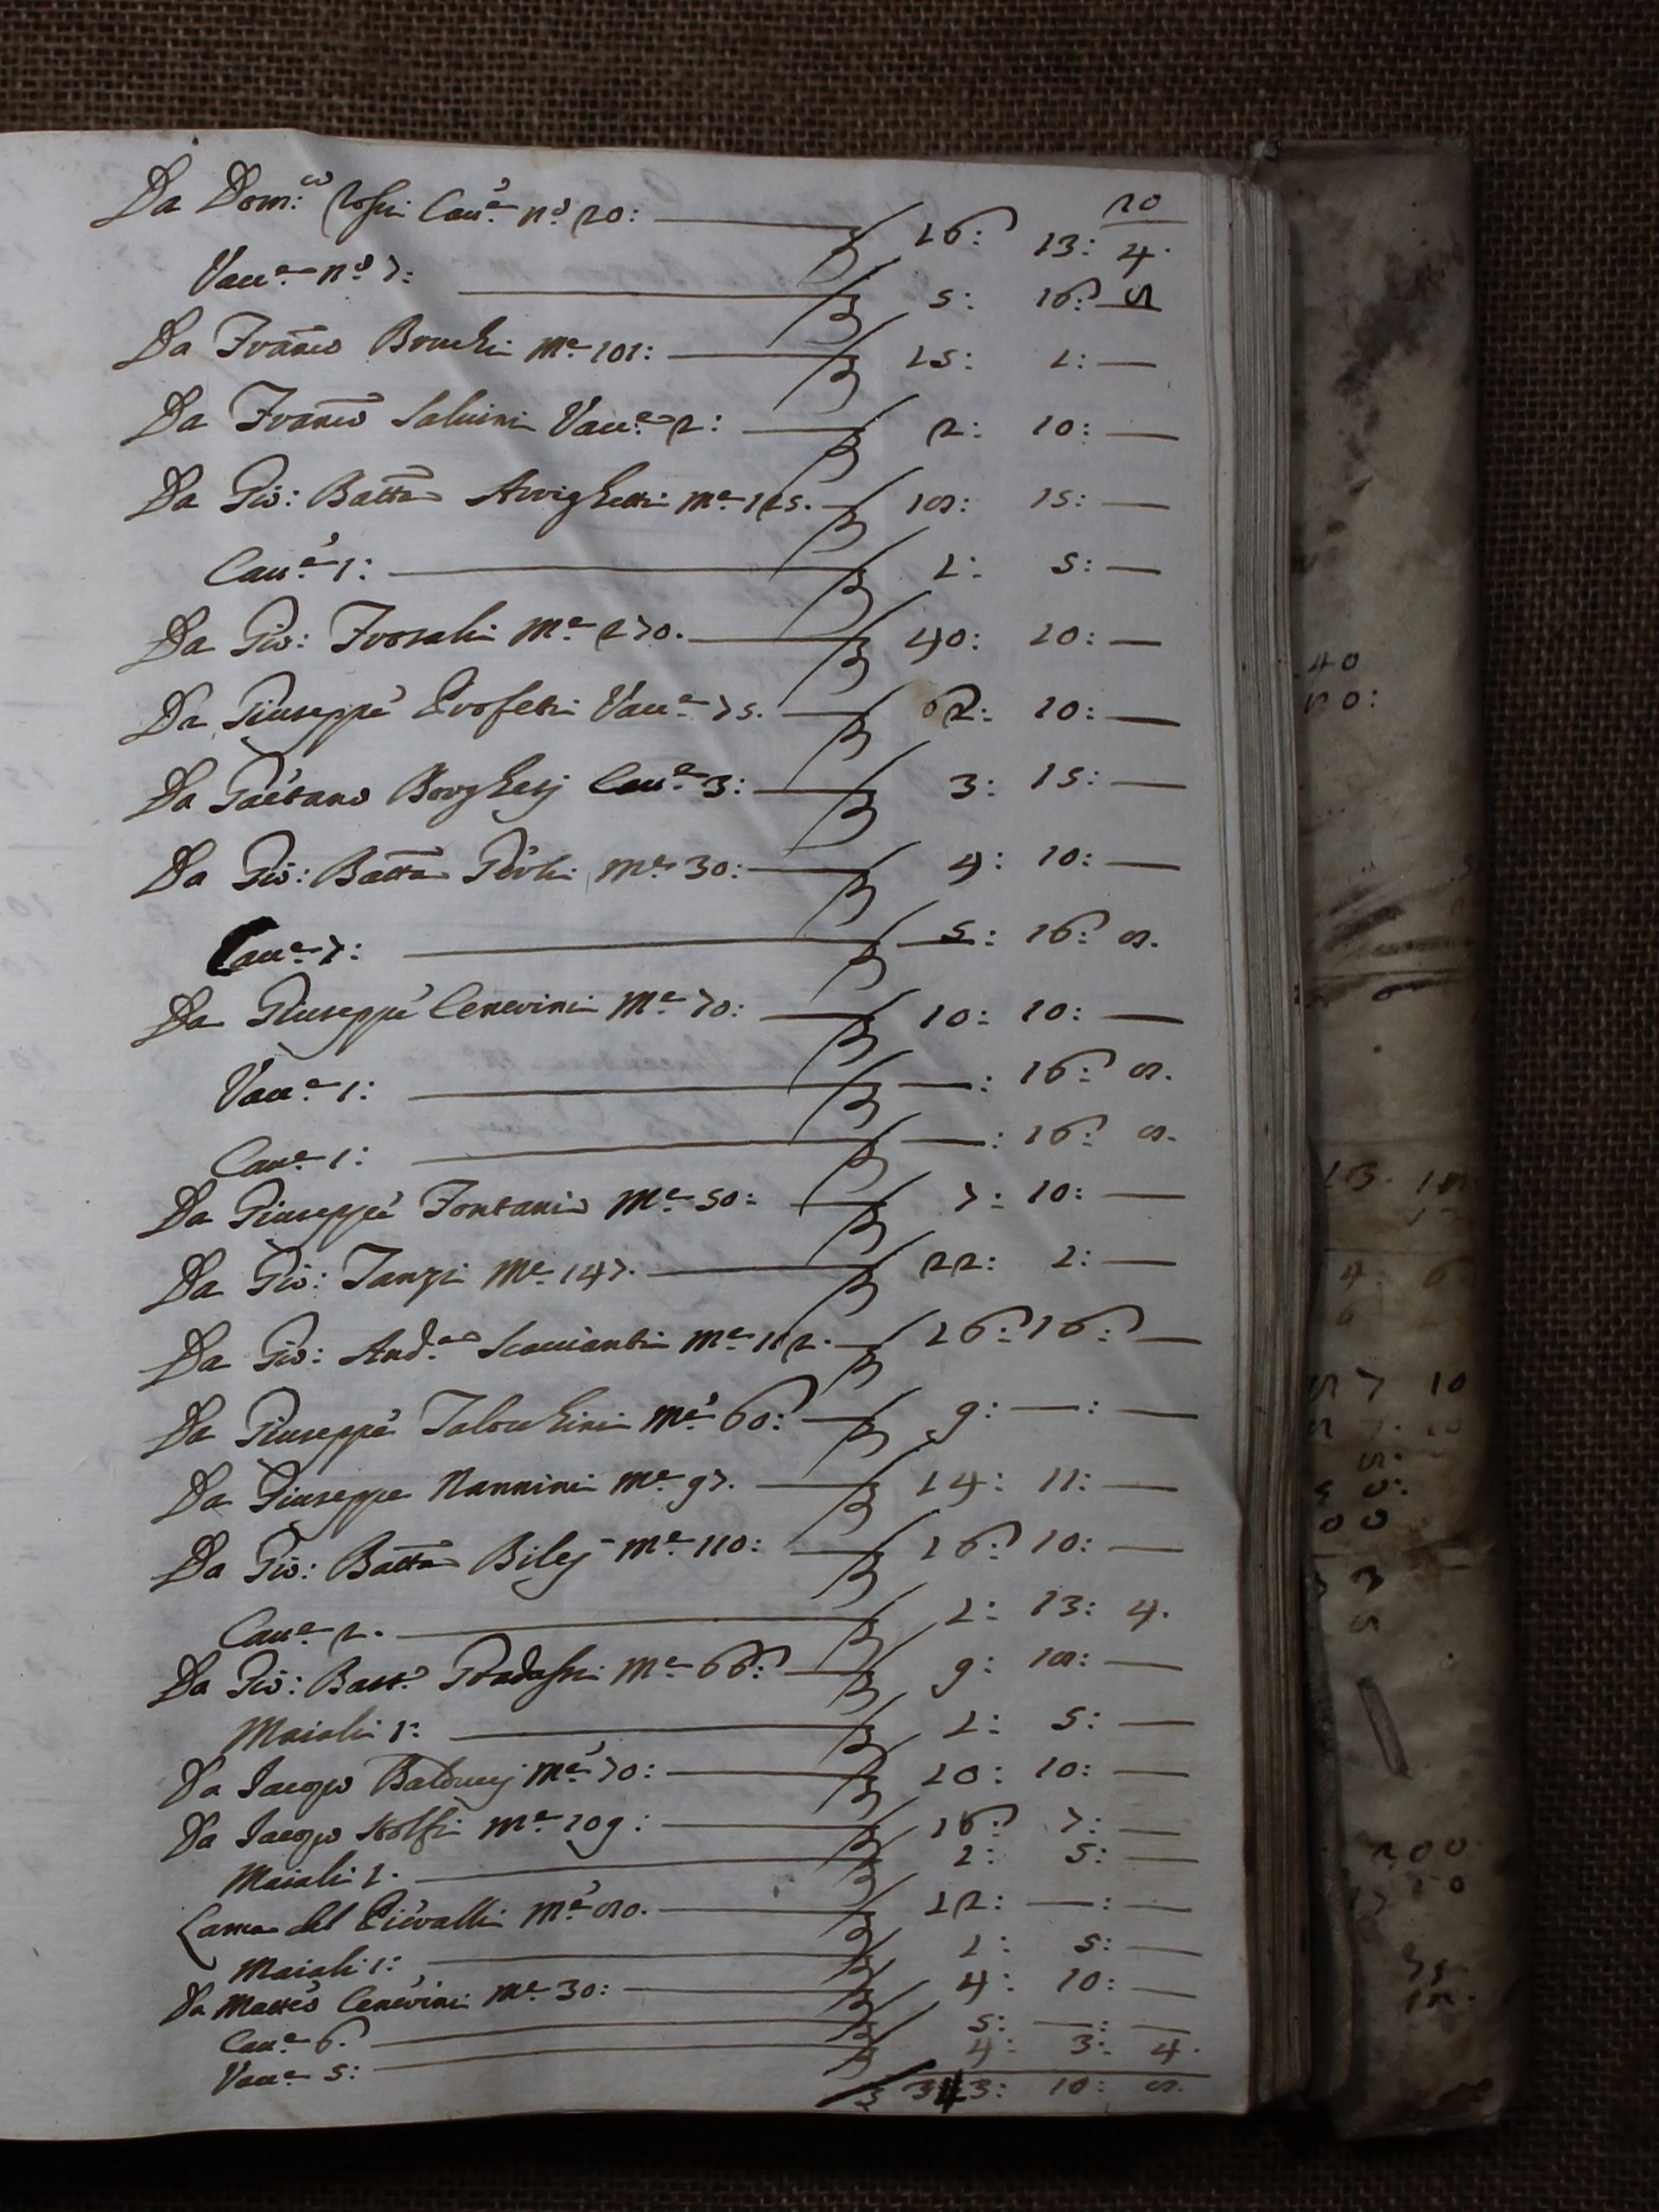 20
Da Dom:co Rossi Cau.e n.o 20: 16: 13: 4.
Vacc.e n.o 7: 5: 16: 8
Da Franco Bruchi Me 101: 15: 1: —
Da Franco Saluini Vacc.e 2: 2: 10: —
Da Gio: Batta Arrighetti Me 125. 18: 15: —
Cau.e 1: 1: 5: —
Da Gio: Frosali Me 270. 40: 10: —
Da Giuseppe Profeti Vacc.e 75. 62: 10: —
Da Gaetano Borghesj Cau.e 3: 3: 15: —
Da Gio: Batta Gerli Me 30: 4: 10: —
Cau.e 7: 5: 16: 8.
Da Giuseppe Cenerini Me 70: 10: 10: —
Vacc.e 1: —: 16: 8.
Cau.e 1: —: 16: 8.
Da Giuseppe Fontani Me 50: 7: 10: —
Da Gio: Tanzi Me 147. 22: 1: —
Da Gio: And.a Scaccianti Me 112. 16: 16: —
Da Giuseppe Talocchini Me 60: 9: —: —
Da Giuseppe Nannini Me 97. 14: 11: —
Da Gio: Batta Bilej Me 110: 16: 10: —
Cau.e 2. 1: 13: 4.
Da Gio: Batt.a Gradassi Me 66: 9: 18: —
Maiali 1: 1: 5: —
Da Jacopo Balducj Me 70: 10: 10: —
Da Jacopo Stolfi Me 109: 16: 7: —
Maiali 1. 1: 5: —
del Me 80. 12: —: —
Maiali 1: 1: 5: —
Da Matteo Cenerini Me 30: 4: 10: —
Cau.e 6. 5: —: —
Vacc.e 5: 4: 3: 4.
343: 10: 8.